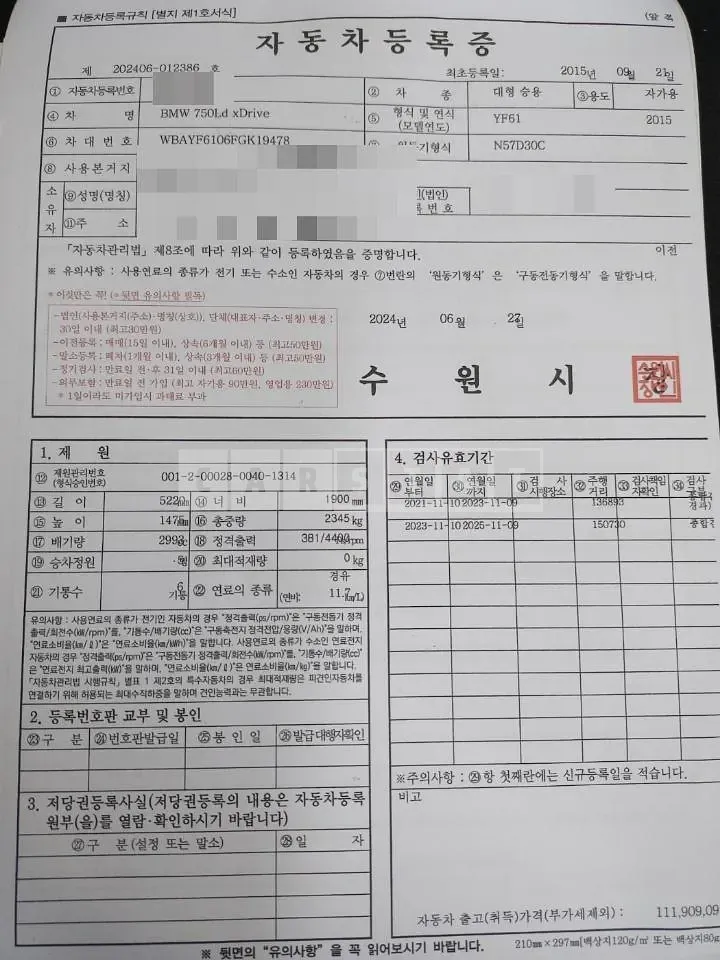 ■ 자동차등록규칙 [별지 제1호서식]
(앞 쪽
자 동 차 등 록 증
제 202406-012386 호
최초등록일: 2015년 09월 21일
① 자동차등록번호
② 차 종 대형 승용 ③용도 자가용
④ 차 명 BMW 750Ld xDrive
⑤ 형식 및 연식 (모델연도) YF61 2015
⑥ 차 대 번 호 WBAYF6106FGK19478
기형식 N57D30C
⑧ 사용본거지
소유자
⑨성명(명칭)
(법인)
록 번 호
⑪주 소
「자동차관리법」 제8조에 따라 위와 같이 등록하였음을 증명합니다.
이전
※ 유의사항 : 사용연료의 종류가 전기 또는 수소인 자동차의 경우 ⑦번란의 '원동기형식' 은 '구동전동기형식' 을 말합니다.
* 이것만은 꼭! (* 뒷면 유의사항 필독)
-법인(사용본거지(주소)·명칭(상호)), 단체(대표자·주소·명칭) 변경 :
30일 이내 (최고30만원)
-이전등록 : 매매(15일 이내), 상속(6개월 이내) 등 (최고50만원)
-말소등록 : 폐차(1개월 이내), 상속(3개월 이내) 등 (최고50만원)
-정기검사 : 만료일 전·후 31일 이내 (최고60만원)
-의무보험 : 만료일 전 가입 (최고 자가용 90만원, 영업용 230만원)
* 1일이라도 미가입시 과태료 부과
2024년 06월 27일
수 원 시 장
수원시
장인
1. 제 원
⑫ 제원관리번호 (형식승인번호) 001-2-00028-0040-1314
⑬ 길 이 5220㎜ ⑭ 너 비 1900 ㎜
⑮ 높 이 1475㎜ ⑯ 총중량 2345 kg
⑰ 배기량 2993cc ⑱ 정격출력 381/4400rpm
⑲ 승차정원 명 ⑳ 최대적재량 0 kg
㉑ 기통수 6 기통 ㉒ 연료의 종류 경유 (연비: 11.7㎞/L)
유의사항 : 사용연료의 종류가 전기인 자동차의 경우 "정격출력(ps/rpm)"은 "구동전동기 정격
출력/회전수(㎾/rpm)"를, "기통수/배기량(cc)"은 "구동축전지 정격전압/용량(V/Ah)"을 말하며,
"연료소비율(㎞/ℓ)"은 "연료소비율(㎞/kWh)"을 말합니다. 사용연료의 종류가 수소인 연료전지
자동차의 경우 "정격출력(ps/rpm)"은 "구동전동기 정격출력/회전수(㎾/rpm)"를, "기통수/배기량(cc)"
은 "연료전지 최고출력(㎾)"을 말하며, "연료소비율(㎞/ℓ)"은 연료소비율(㎞/kg)"을 말합니다.
「자동차관리법 시행규칙」 별표 1 제2호의 특수자동차의 경우 최대적재량은 피견인자동차를
연결하기 위해 허용되는 최대수직하중을 말하며 견인능력과는 무관합니다.
2. 등록번호판 교부 및 봉인
㉓구 분 ㉔번호판발급일 ㉕봉 인 일 ㉖발급대행자확인
3. 저당권등록사실(저당권등록의 내용은 자동차등록
원부(을)를 열람·확인하시기 바랍니다)
㉗구 분 (설정 또는 말소) ㉘일 자
4. 검사유효기간
㉙연월일부터 ㉚연월일까지 ㉛검 사 시행장소 ㉜주행 거리 ㉝검사책임자확인 ㉞검사 구분
2021-11-10 2023-11-09 136893 종합 검사)
2023-11-10 2025-11-09 150730 종합
※주의사항 : ㉙항 첫째란에는 신규등록일을 적습니다.
비고
자동차 출고(취득)가격(부가세제외) : 111,909,09
※ 뒷면의 "유의사항" 을 꼭 읽어보시기 바랍니다.
210㎜×297㎜[백상지120g/㎡ 또는 백상지80g